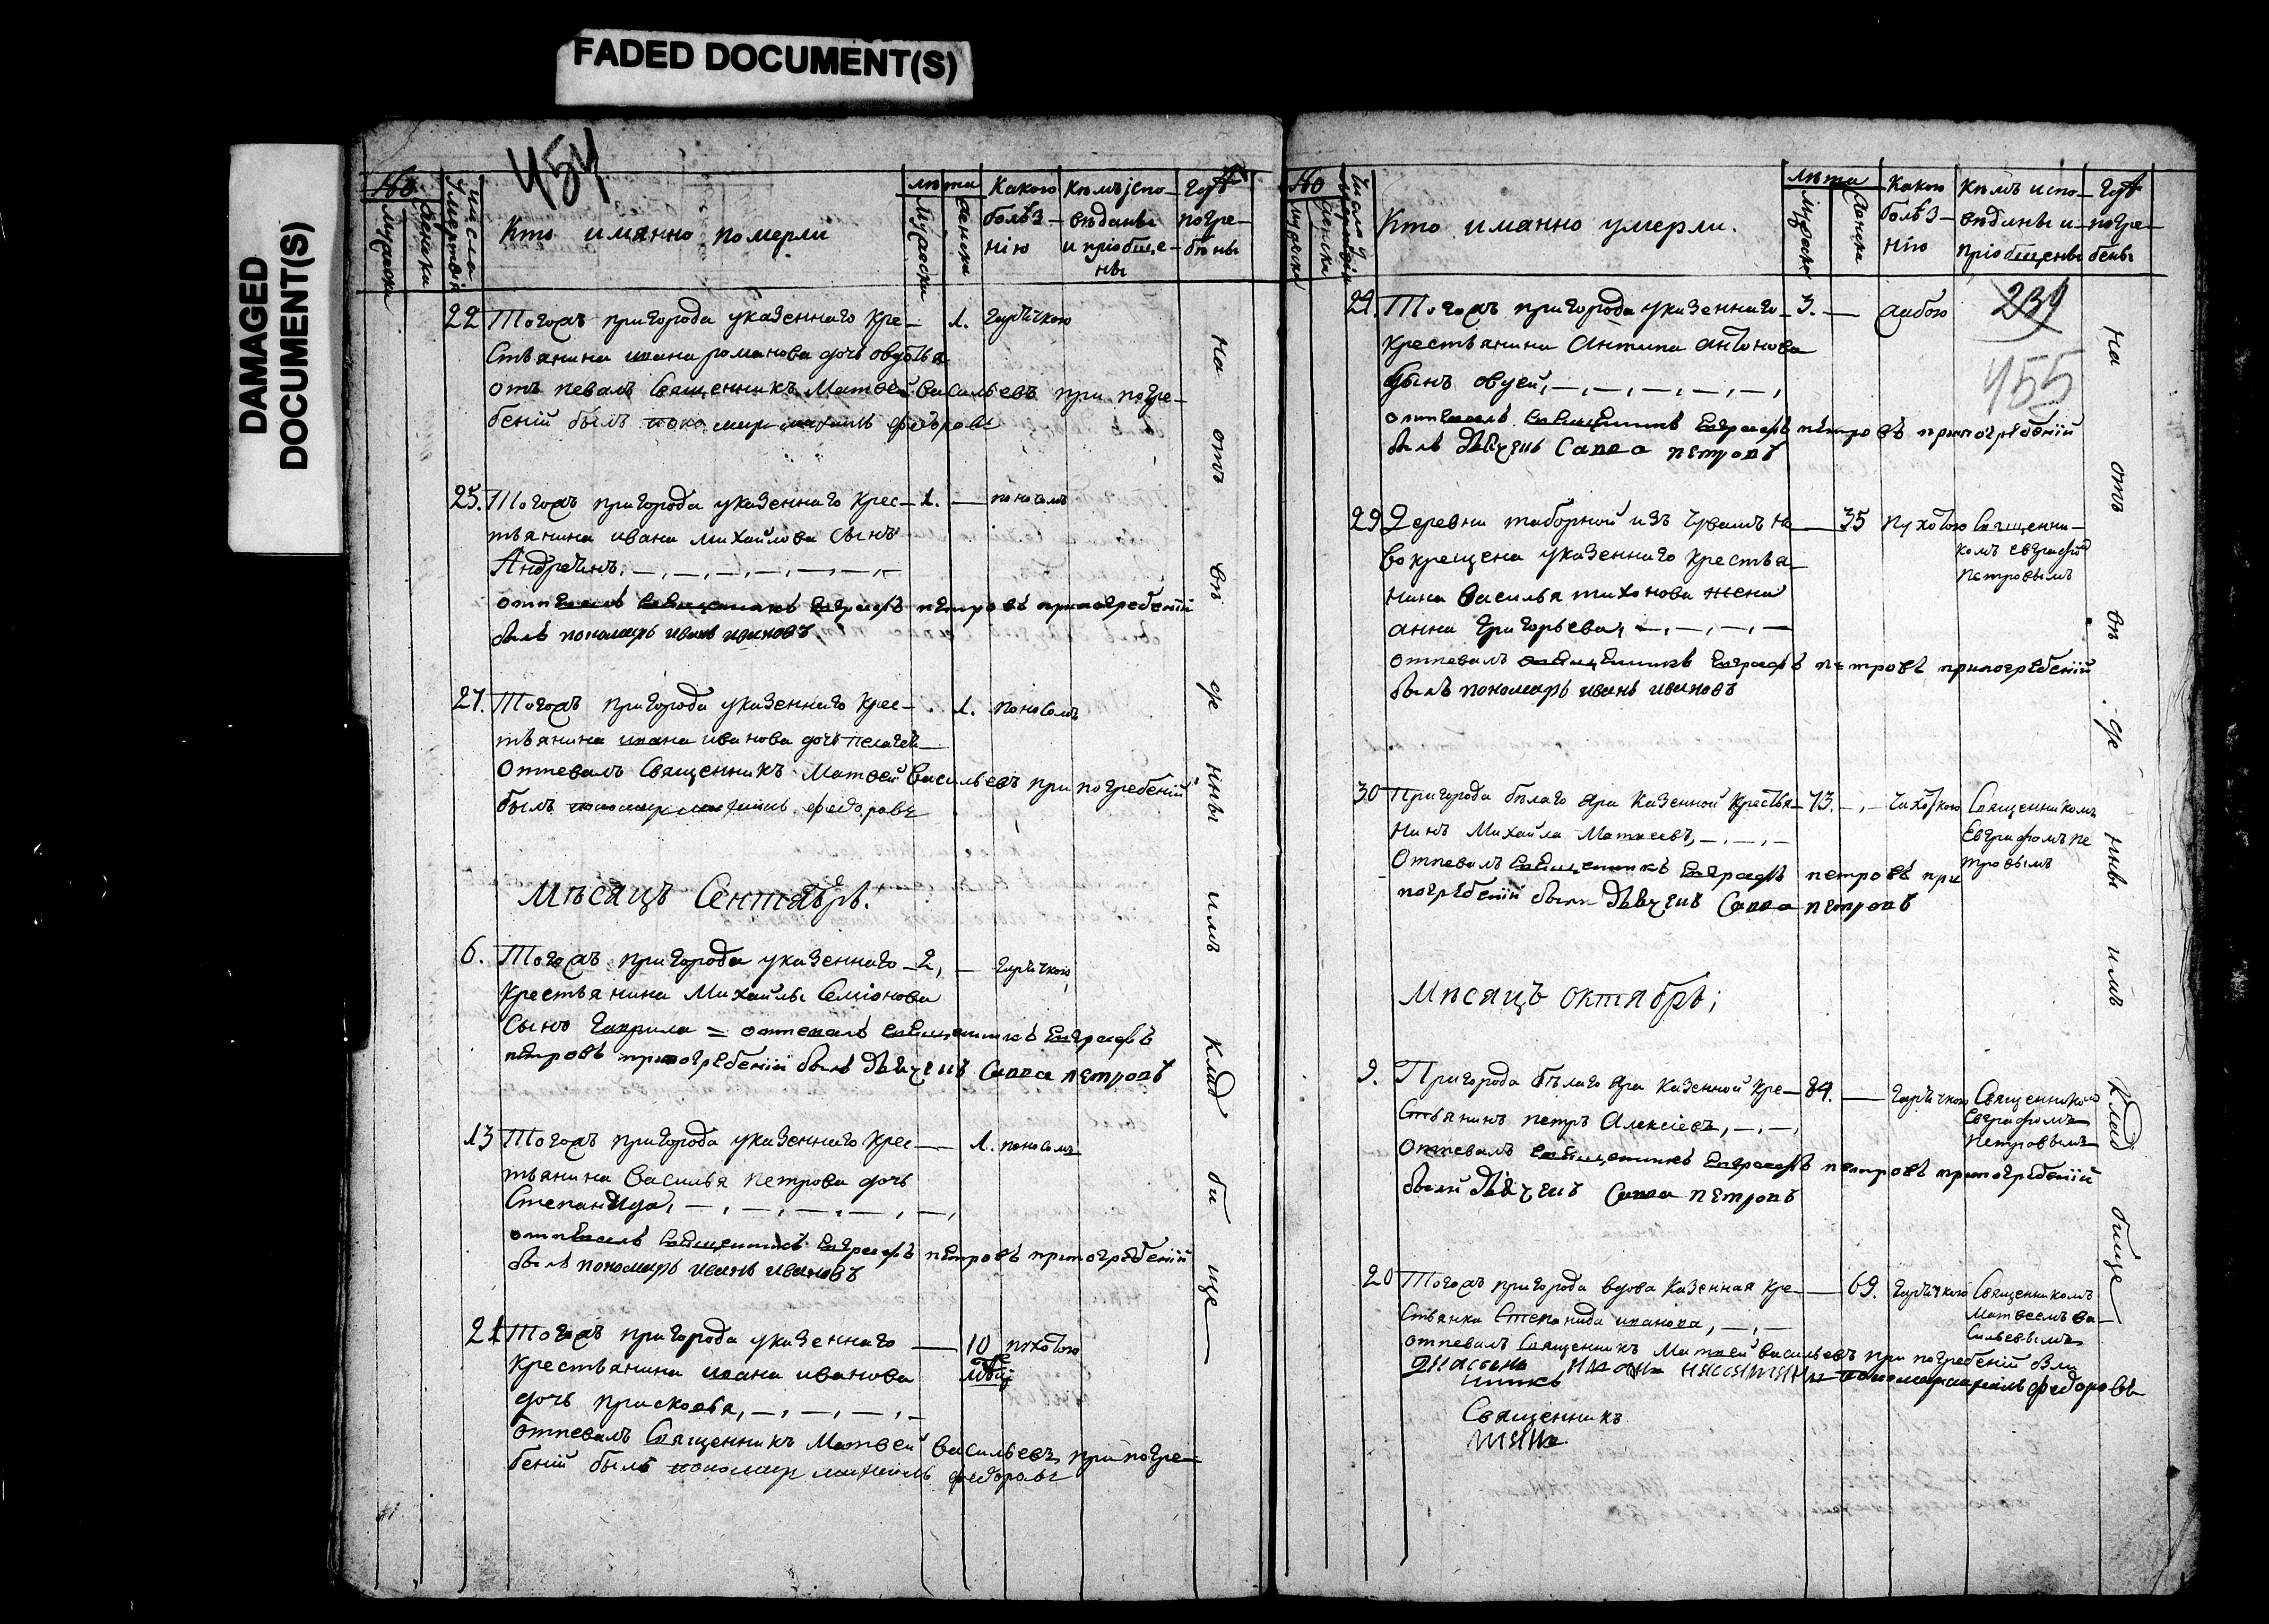 FADED DOCUMENT(S)
DAMAGED
DOCUMENT(S)
454
№
Мужеска
Женска
числа
Умертвія
Кто иманно померли
лѣта
Мужеска
Женска
Какою
болѣз-
нію
Кѣмъ испо-
вѣданы
и пріобще-
ны
Гдѣ
погре-
бены
22 Тогожъ пригорода указеннаго кре- 1. гарячкою
стьянина ивана романова дочь овдотья
отъ певалъ Священникъ Матвей Васильевъ при погре-
беніи былъ пономарь михаилъ федоровъ
25. Тогожъ пригорода указеннаго крес- 1. — поносомъ
тьянина ивана михайлова сынъ
Андреянъ, —,—,—,—,—,—
отпевалъ священникъ Евграфъ петровъ припогребеніи
былъ пономарь иванъ ивановъ
27. Тогожъ пригорода указеннаго крес- 1. поносомъ
тьянина ивана иванова дочь пелагея
Отпевалъ Священникъ Матвей Васильевъ при погребеніи
былъ пономарь михаилъ федоровъ
Мѣсяцъ Сентябрь.
6. Тогожъ пригорода указеннаго 2, — гарячкою
крестьянина Михайлы Семіонова
сынъ Гаврила = отпевалъ священникъ Евграфъ
петровъ припогребеніи былъ дьячекъ Савва петровъ
13 Тогожъ пригорода указеннаго крес — 1. поносомъ
тьянина Василья петрова дочь
Степанида, —,—,—,—,—,
отпевалъ священникъ Евграфъ петровъ припогребеніи
былъ пономарь иванъ ивановъ
21 Тогожъ пригорода указеннаго — 10
крестьянина ивана иванова
дочь прасковья, —,—,—,—
отпевалъ Священникъ Матвей Васильевъ при погре-
беніи былъ пономарь михаилъ федоровъ
На отъ ве де нны имъ Клад би ще
№
Мужеска
Женска
Числа
Кто иманно умерли.
лѣта
Мужеска
Женска
Какою
болѣз-
нію
Кѣмъ испо-
веданы и
пріобщены
Гдѣ
погре-
бены
239
455
24. Тогожъ пригорода указеннаго 3. —
крестьянина Антипа антонова
сынъ —,—,—,—,—,
отпевалъ священникъ Евграфъ петровъ припогребеніи
былъ дьячекъ Савва петровъ
29 Деревни таборной изъ чувашъ но — 35
вокрещена указеннаго крестья
нина Василья тихонова жена
анна Григорьева, —,—,—,—
отпевалъ священникъ Евграфъ петровъ припогребеніи
былъ пономарь иванъ ивановъ
Священни-
комъ евграфо
Петровымъ
30 Пригорода бѣлаго яра казенной крестья 73. —,— чахоткою
нинъ Михайла Матвеевъ, —,—,—
Отпевалъ священникъ Евграфъ петровъ при
погребеніи были дьячекъ Савва петровъ
Священникомъ
Евграфомъ Пе
тровымъ
Мѣсяцъ октябрь;
9. Пригорода бѣлаго яра казенной кре — 84. — гарячкою
стьянинъ петръ Алексіевъ, —,—,
Отпевалъ священникъ Евграфъ петровъ припогребеніи
были дьячекъ Савва петровъ
Священнико
Евграфомъ
Петровымъ
20 Тогожъ пригорода вдова казенная кре — 69. гарячкою
стьянка Степанида иванова, —,—
отпевалъ Священникъ Матвей Васильевъ при погребеніи был
пономарь михаилъ федоровъ
Священникомъ
Матвеемъ ва
сильевымъ
Священникъ
На отъ ве де нны имъ Клад бище